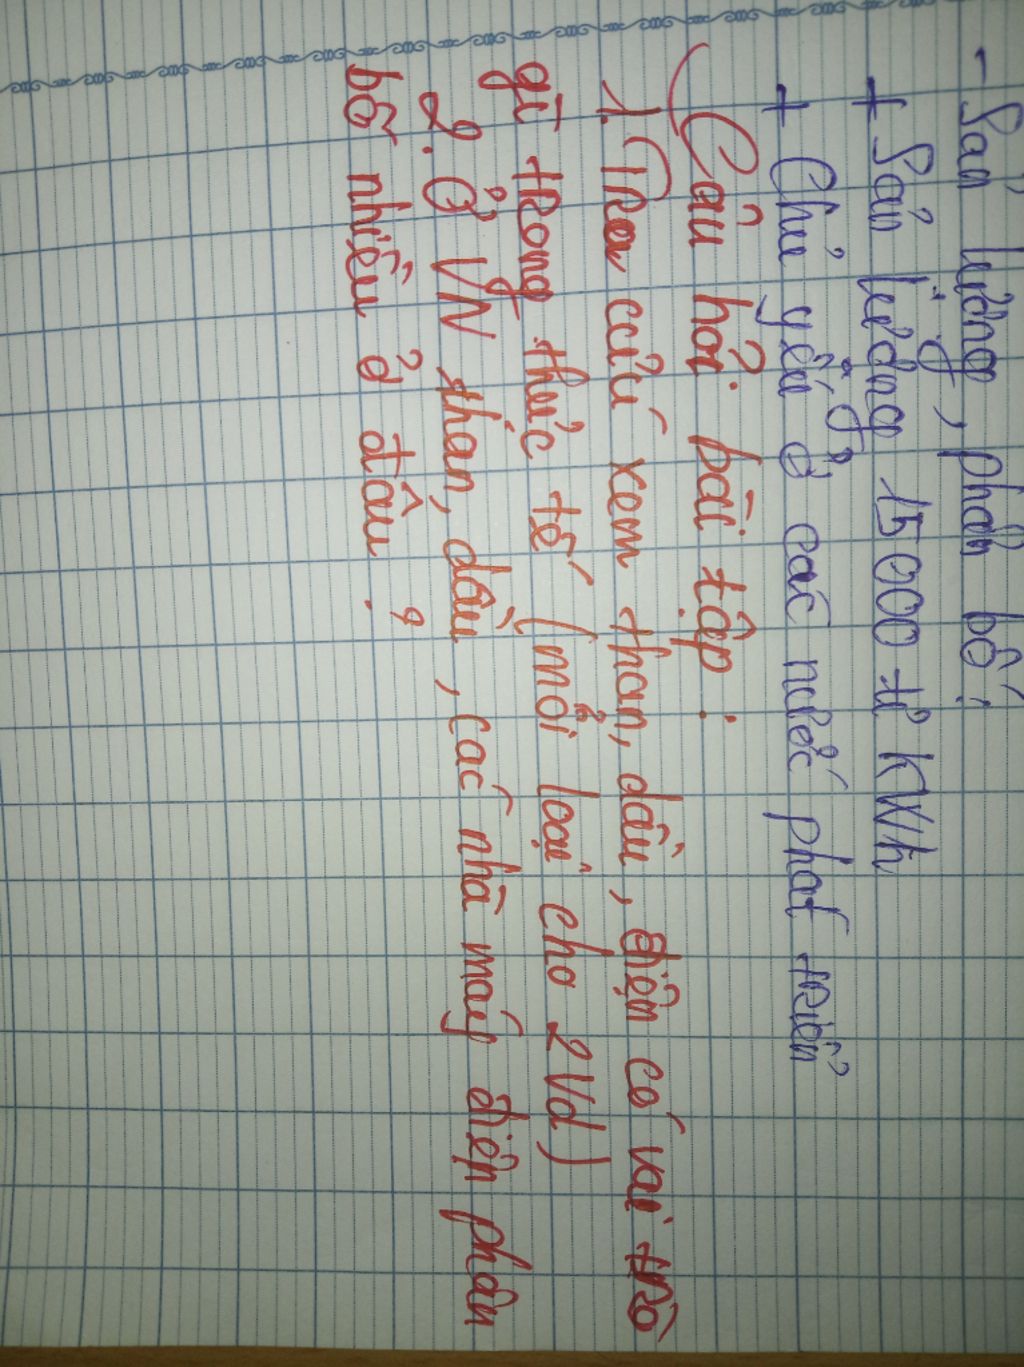 - Sản lượng, phân bố:
+ Sản lượng 15000 tỉ KWh
+ Chủ yếu ở các nước phát triển
Câu hỏi bài tập:
1. Tra cứu xem than, dầu, điện có vai trò
gì trong thực tế (mỗi loại cho 2 Vd)
2. Ở VN than, dầu, các nhà máy điện phân
bố nhiều ở đâu?